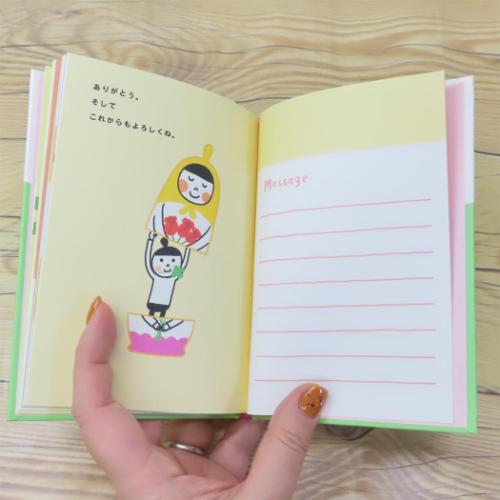 ありがとう。
そして
これからもよろしくね。
Message